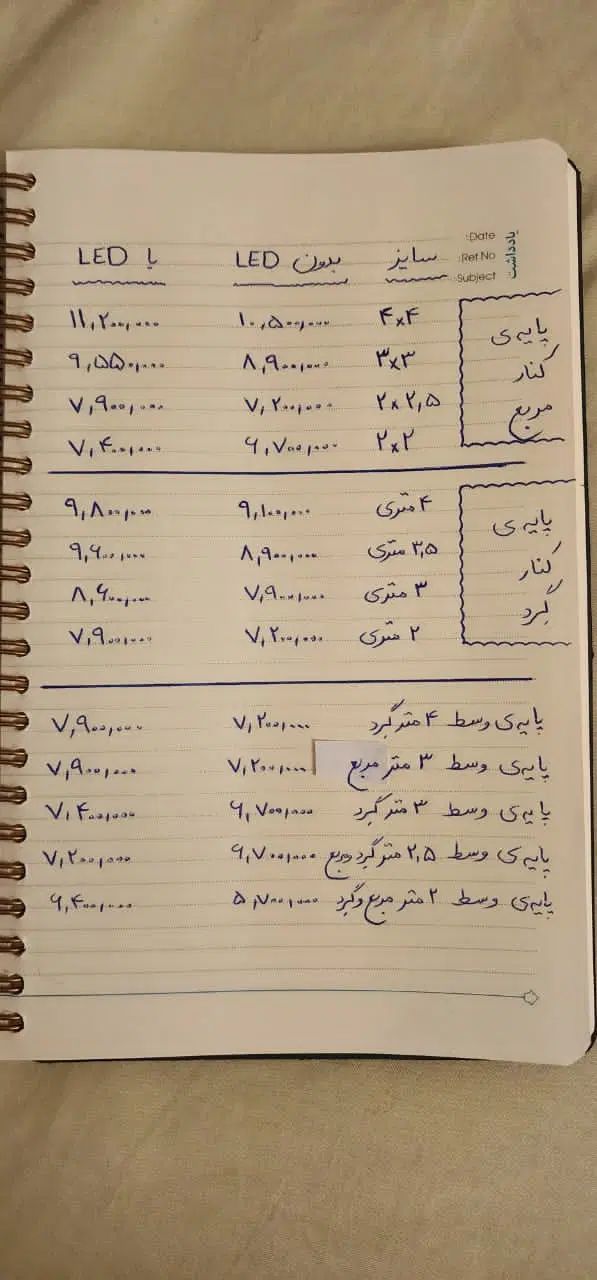 یادداشت
Date:
Ref.No:
Subject:
سایز بدون LED با LED
پایه‌ی کنار مربع
۴x۴ ۱۰,۵۰۰,۰۰۰ ۱۱,۲۰۰,۰۰۰
۳x۳ ۸,۹۰۰,۰۰۰ ۹,۵۵۰,۰۰۰
۲x۲,۵ ۷,۲۰۰,۰۰۰ ۷,۹۰۰,۰۰۰
۲x۲ ۶,۷۰۰,۰۰۰ ۷,۴۰۰,۰۰۰
پایه‌ی کنار گرد
۴ متری ۹,۱۰۰,۰۰۰ ۹,۸۰۰,۰۰۰
۳,۵ متری ۸,۹۰۰,۰۰۰ ۹,۶۰۰,۰۰۰
۳ متری ۷,۹۰۰,۰۰۰ ۸,۶۰۰,۰۰۰
۲ متری ۷,۲۰۰,۰۰۰ ۷,۹۰۰,۰۰۰
پایه‌ی وسط ۴ متر گرد ۷,۲۰۰,۰۰۰ ۷,۹۰۰,۰۰۰
پایه‌ی وسط ۳ متر مربع ۷,۲۰۰,۰۰۰ ۷,۹۰۰,۰۰۰
پایه‌ی وسط ۳ متر گرد ۶,۷۰۰,۰۰۰ ۷,۴۰۰,۰۰۰
پایه‌ی وسط ۲,۵ متر گرد و مربع ۶,۷۰۰,۰۰۰ ۷,۲۰۰,۰۰۰
پایه‌ی وسط ۲ متر مربع و گرد ۵,۷۰۰,۰۰۰ ۶,۴۰۰,۰۰۰